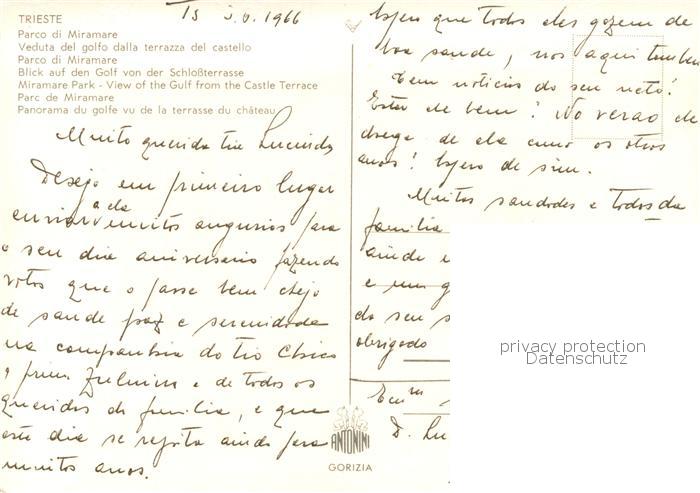 TRIESTE
Parco di Miramare
Veduta del golfo dalla terrazza del castello
Parco di Miramare
Blick auf den Golf von der Schloßterrasse
Miramare Park - View of the Gulf from the Castle Terrace
Parc de Miramare
Panorama du golfe vu de la terrasse du château
Ts 1966
Muito querida tia Lucinda
Desejo em primeiro lugar
enviar a ela muitos augurios para
o seu dia aniversario fazendo
votos que o passe bem cheio
de saude paz e serenidade
na companhia do tio Chico
e prima Zulmira e de todos os
queridos da familia, e que
este dia se repita ainda para
muitos anos.
espero que todos eles gozem de
boa saude, nos aqui tambem
Tem noticias do seu neto?
Estar de bem? No verao
de ela como os otros
anos! espero de sim.
Muitas saudades e todos da
familia
ainda
e um g
do seu s
obrigado
D. Lu
ANTONINI
GORIZIA
privacy protection
Datenschutz